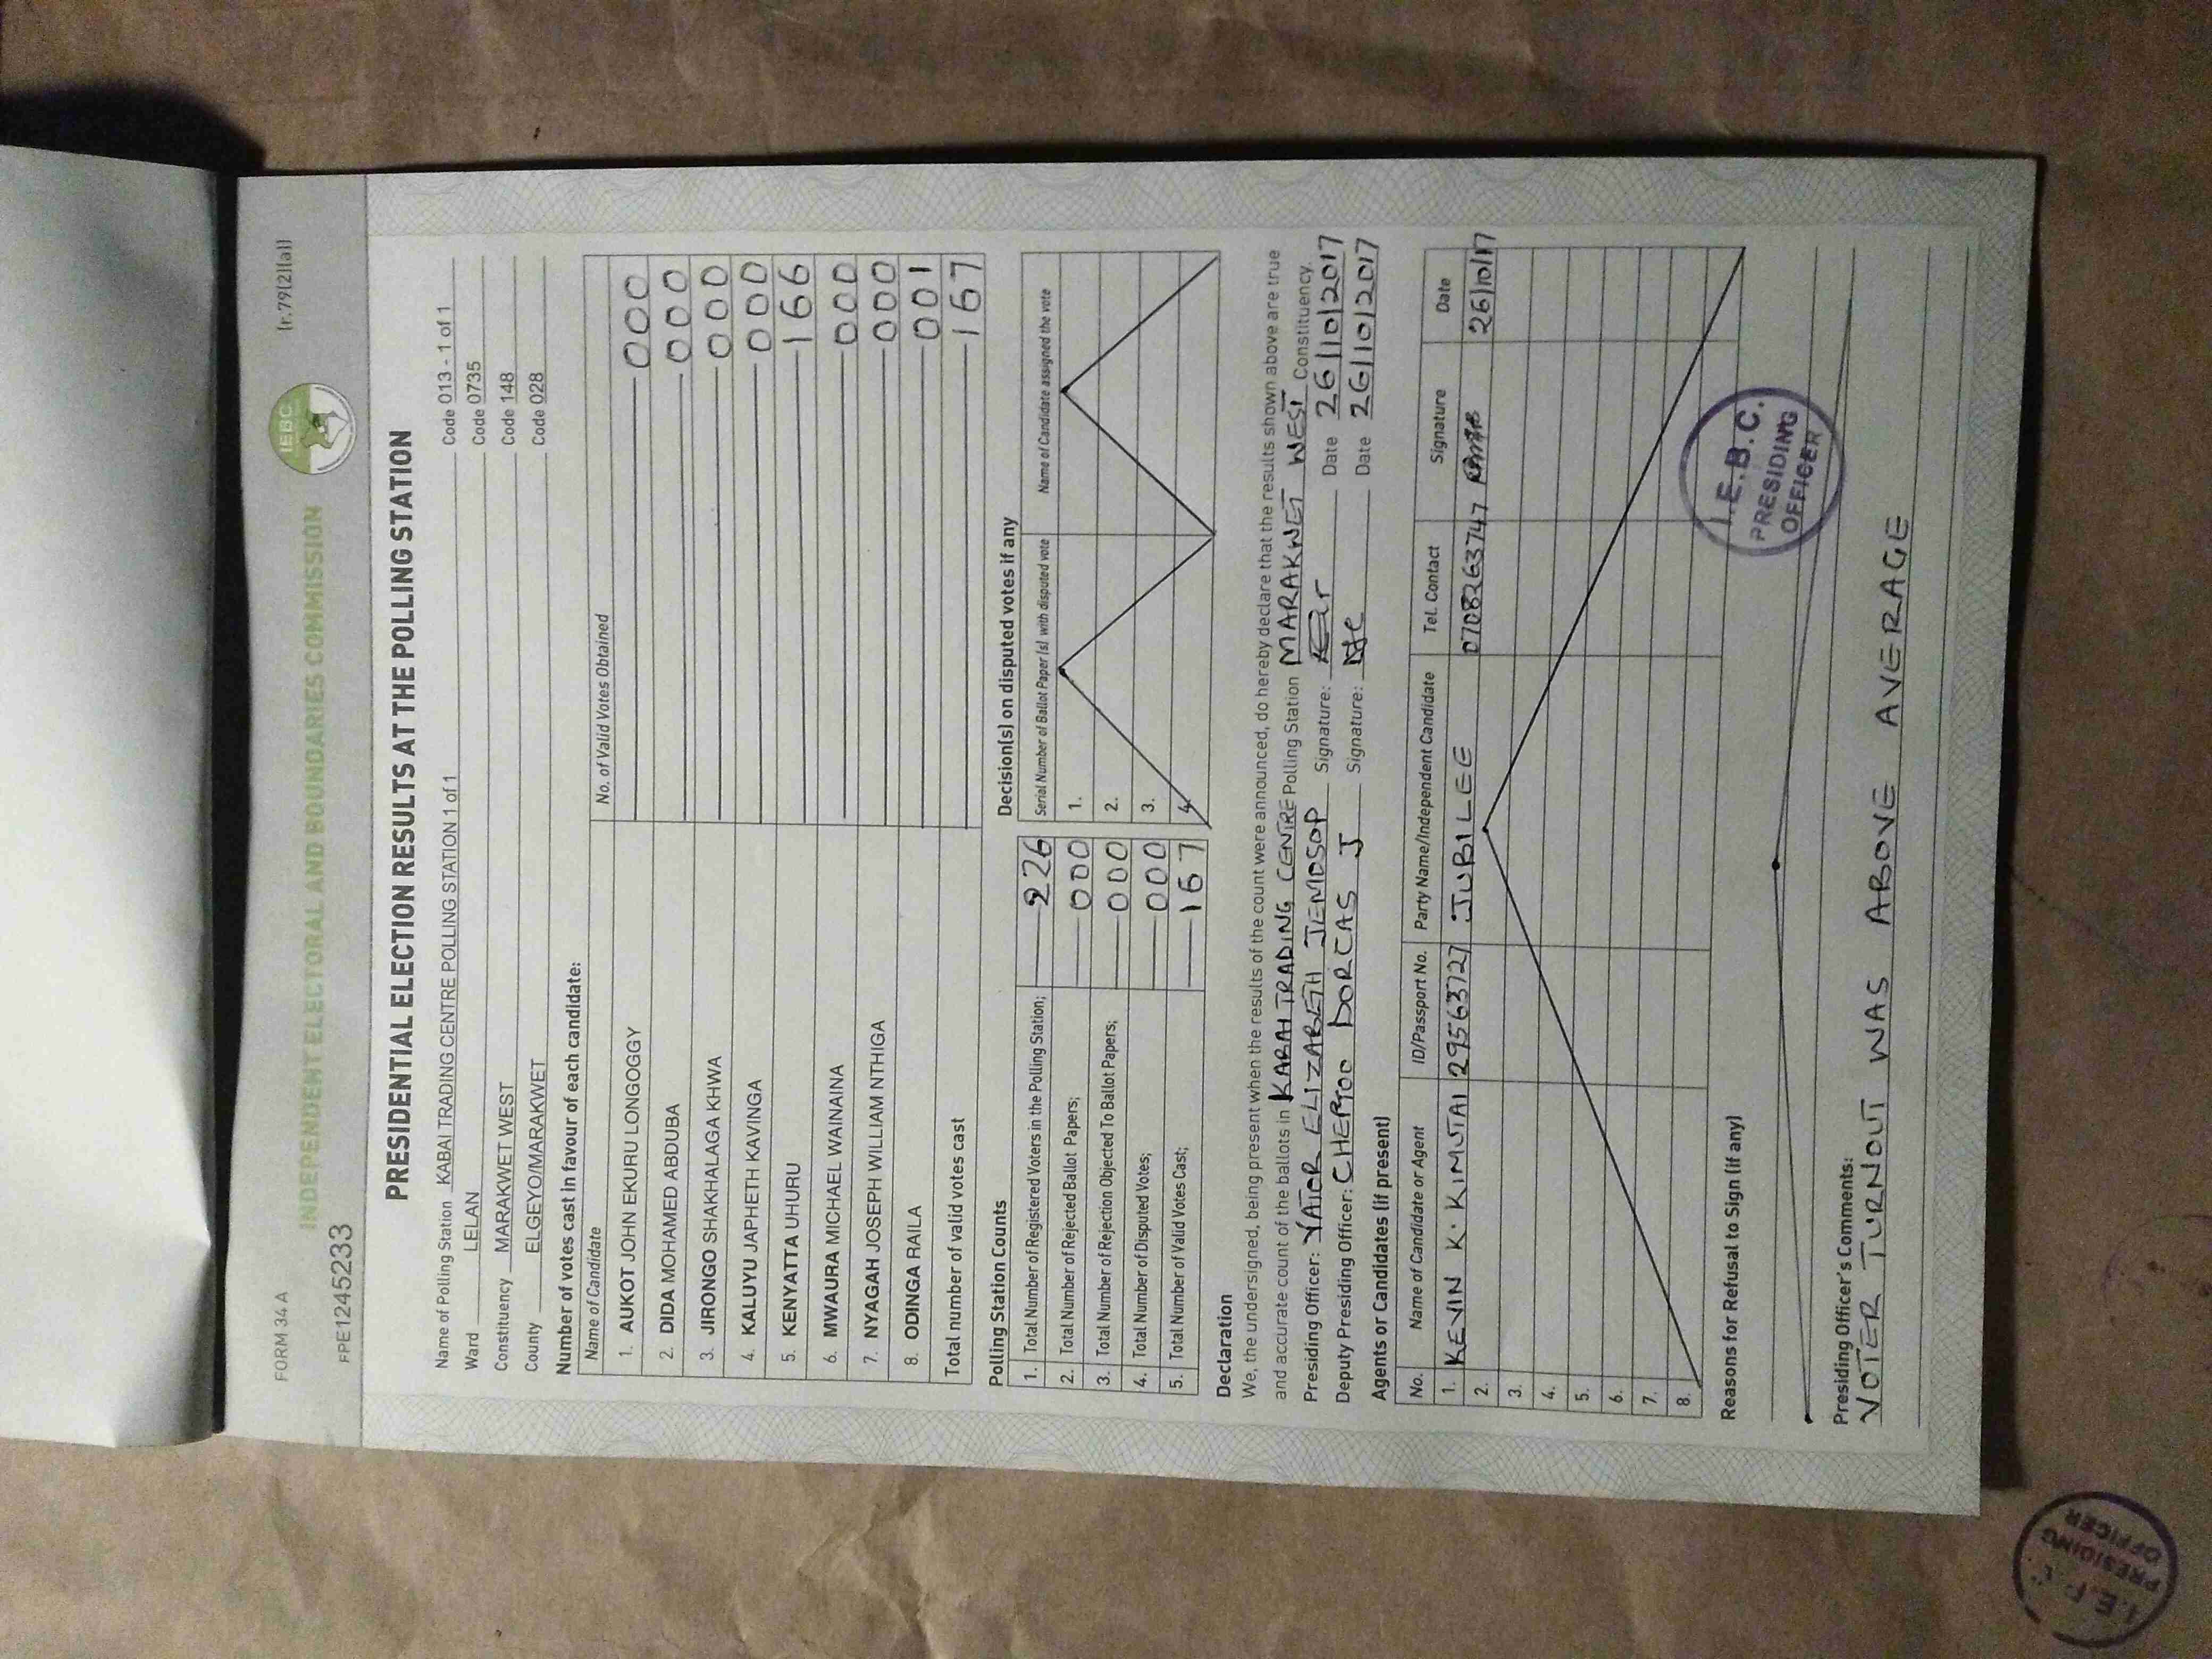 FORM 34 A
[r.79(2)(a)]
INDEPENDENT ELECTORAL AND BOUNDARIES COMMISSION
IEBC
FPE1245233
PRESIDENTIAL ELECTION RESULTS AT THE POLLING STATION
Name of Polling Station KABAI TRADING CENTRE POLLING STATION 1 of 1 Code 013 - 1 of 1
Ward LELAN Code 0735
Constituency MARAKWET WEST Code 148
County ELGEYO/MARAKWET Code 028
Number of votes cast in favour of each candidate:
Name of Candidate No. of Valid Votes Obtained
1. AUKOT JOHN EKURU LONGOGGY 000
2. DIDA MOHAMED ABDUBA 000
3. JIRONGO SHAKHALAGA KHWA 000
4. KALUYU JAPHETH KAVINGA 000
5. KENYATTA UHURU 166
6. MWAURA MICHAEL WAINAINA 000
7. NYAGAH JOSEPH WILLIAM NTHIGA 000
8. ODINGA RAILA 001
Total number of valid votes cast 167
Polling Station Counts
1. Total Number of Registered Voters in the Polling Station; 226
2. Total Number of Rejected Ballot Papers; 000
3. Total Number of Rejection Objected To Ballot Papers; 000
4. Total Number of Disputed Votes; 000
5. Total Number of Valid Votes Cast; 167
Decision(s) on disputed votes if any
Serial Number of Ballot Paper (s) with disputed vote Name of Candidate assigned the vote
1.
2.
3.
4.
Declaration
We, the undersigned, being present when the results of the count were announced, do hereby declare that the results shown above are true
and accurate count of the ballots in KABAI TRADING CENTRE Polling Station MARAKWET WEST Constituency.
Presiding Officer: YATOR ELIZABETH JEMOSOP Signature: Date 26/10/2017
Deputy Presiding Officer: CHEPTOO DORCAS J Signature: Date 26/10/2017
Agents or Candidates (if present)
No. Name of Candidate or Agent ID/Passport No. Party Name/Independent Candidate Tel. Contact Signature Date
1. KEVIN K. KIMUTAI 29563727 JUBILEE 0708263747 26/10/17
2.
3.
4.
5.
6.
7.
8.
I.E.B.C.
PRESIDING
OFFICER
Reasons for Refusal to Sign (if any)
Presiding Officer's Comments:
VOTER TURNOUT WAS ABOVE AVERAGE
PRESIDING
OFFICER